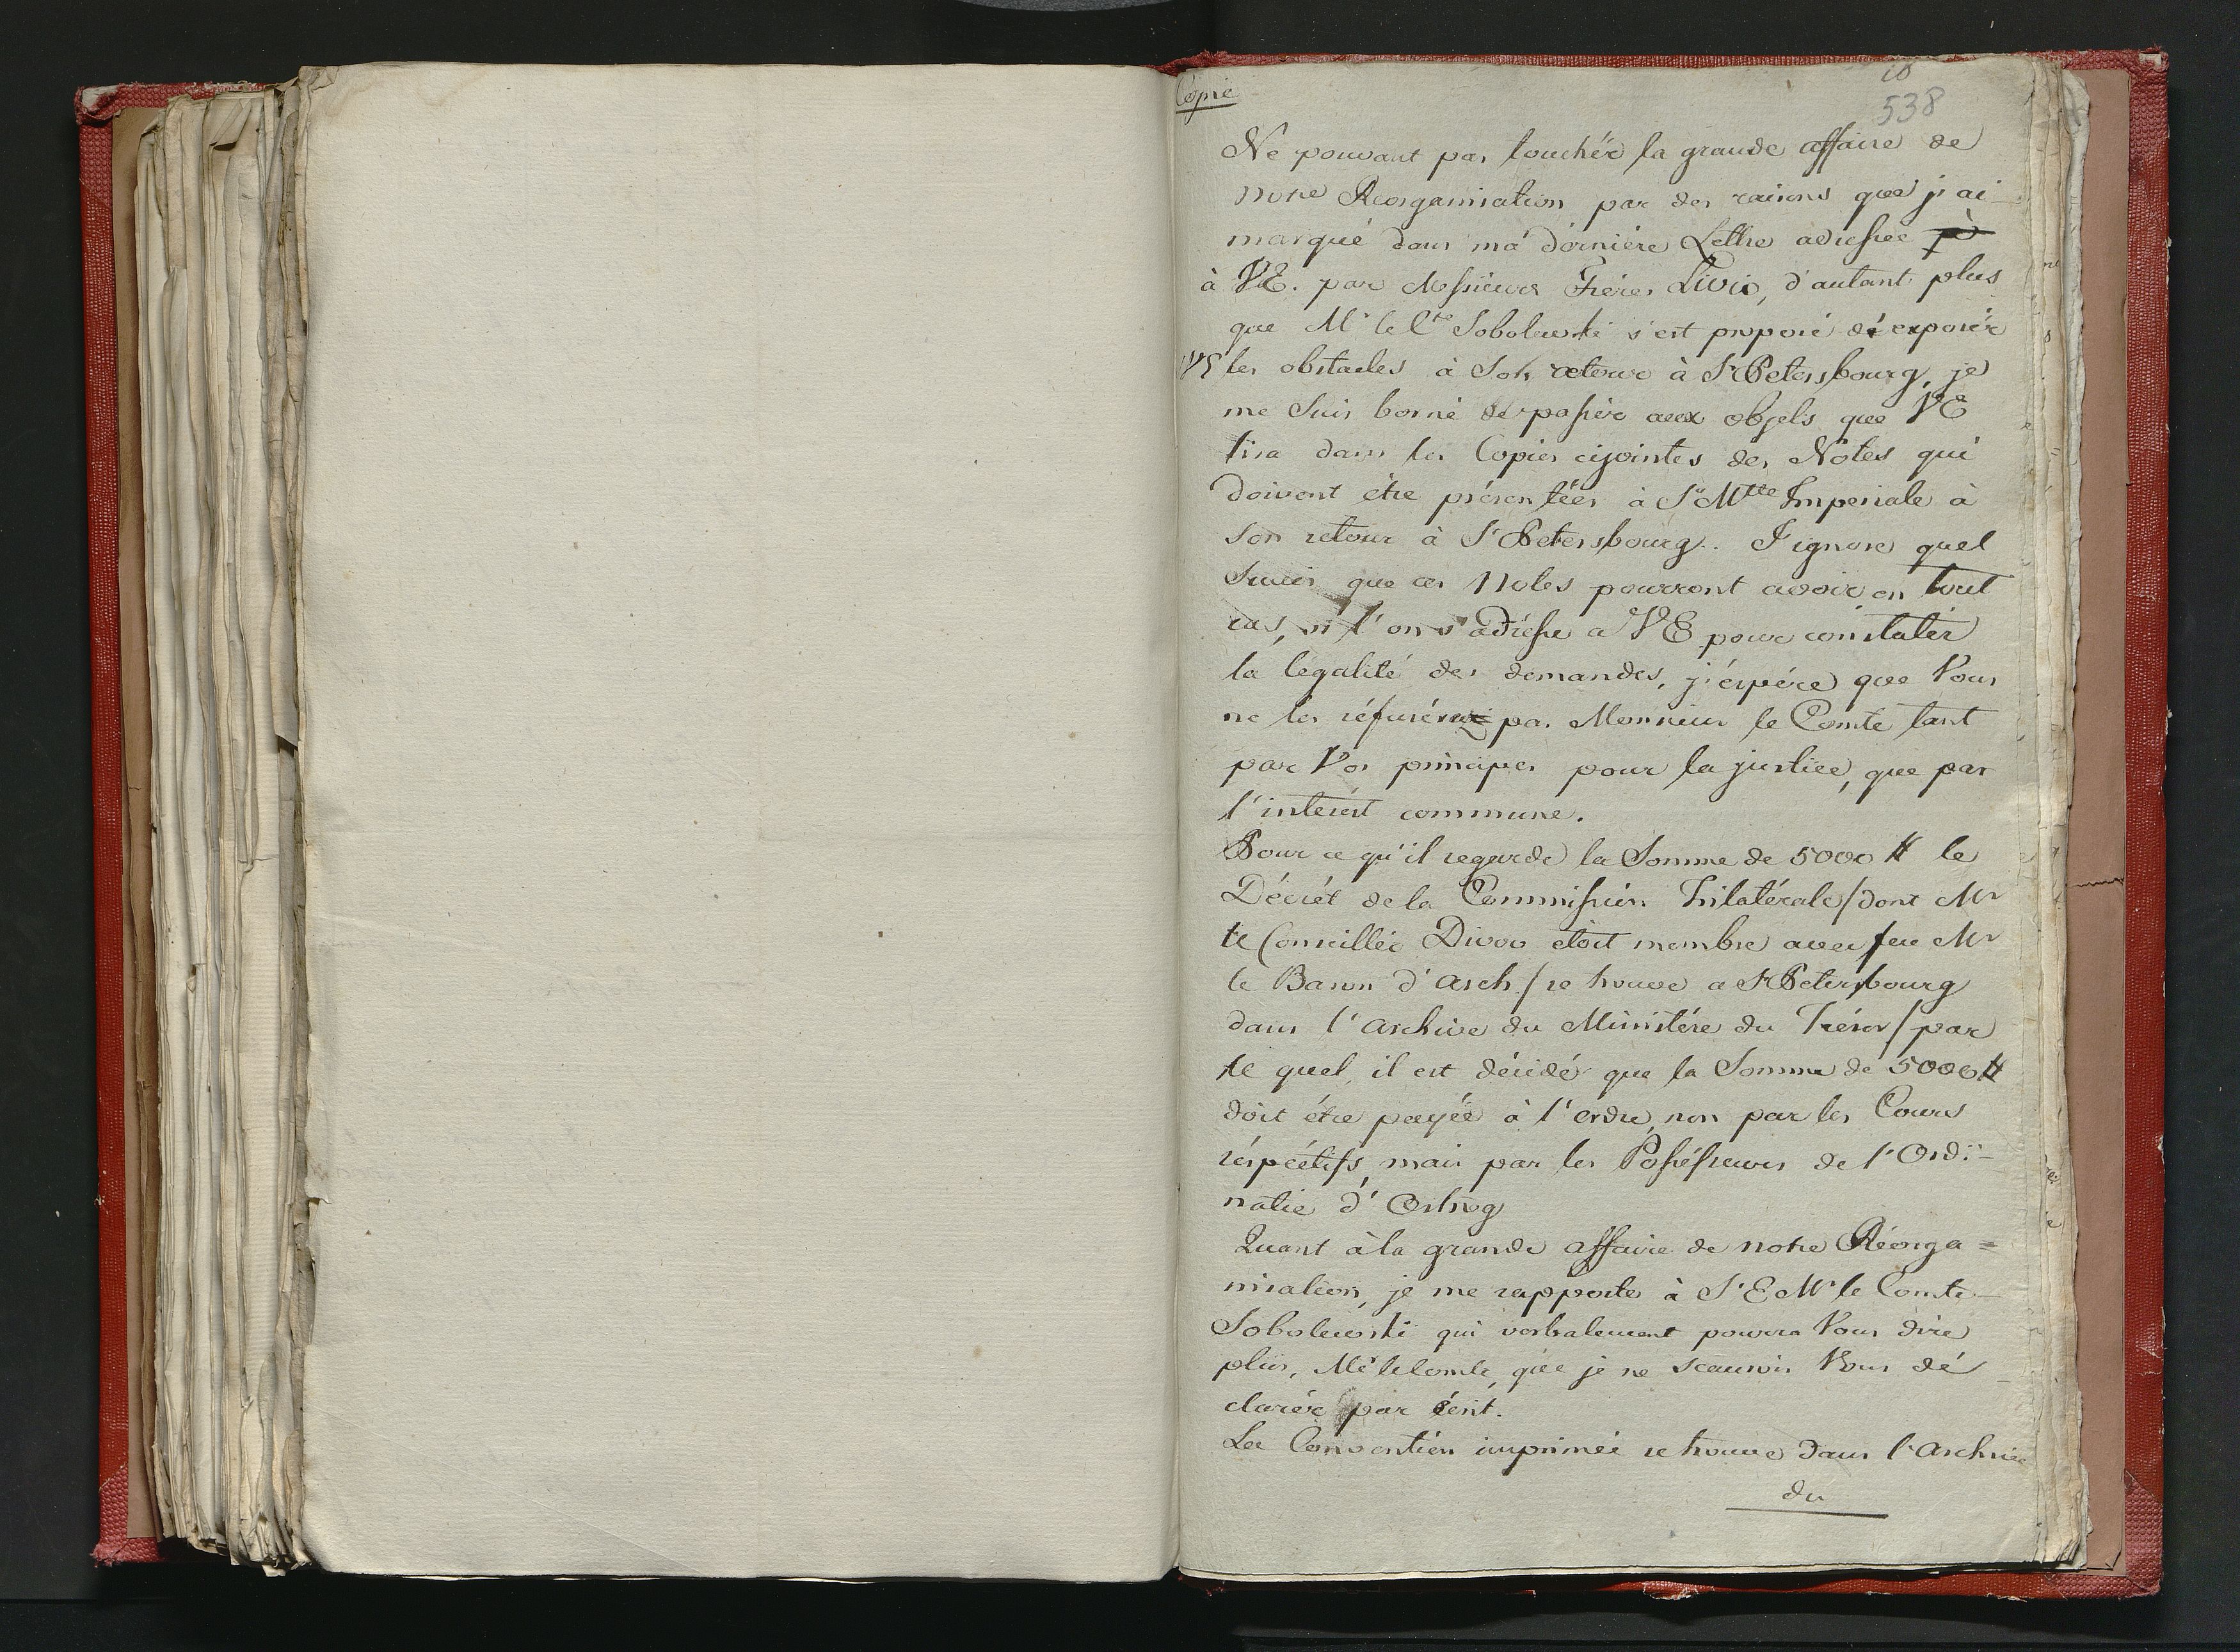 Copie
10
538
Ne pouvant pas touchér la grande affaire de
notre Reorganisation par des raisons que j'ai
marqué dans ma dérniére Lettre adressée
à VE. par Messieurs Fréres Livio, d'autant plus
que Mr le Cte Sobolewski s'est proposé d'exposér
VE les obstacles à Son retour à St Petersbourg, je
me suis borné de passér aux objets que VE
lira dans les Copies cijointes des Notes qui
doivent étre présentées à Sa Mtté Imperiale à
Son retour à St Petersbourg. J'ignore quel
Succés que ces Notes pourront avoir en tout
cas, si l'on s'adresse a VE pour constatér
la legalité des demandes, j'éspére que Vous
ne les réfuséréz pas Monsieur le Comte tant
par Vos principes pour la justice, que par
l'interest commune.
Pour ce qu'il regarde la Somme de 5000 # le
Décrét de la Commission Trilatérale / dont Mr
le Conseillér Divov étoit membre avec feu Mr
le Baron d'Asch / se trouve a St Petersbourg
dans l'Archive du Ministére du Trésor / par
le quel, il est décidé que la Somme de 5000 #
doit étre payée à l'ordre, non par les Cours
réspéctifs, mais par les Possésseurs de l'Ordi-
natie d'Ostrog
Quant à la grande affaire de notre Réorga=
nisation, je me rapporte à S.E Mr le Comte
Sobolewski qui verbalement pourra Vous dire
plus, Mr le Comte, que je ne sçaurois Vous dé
clarér par écrit.
La Convention imprimée se trouve dans l'Archive
du